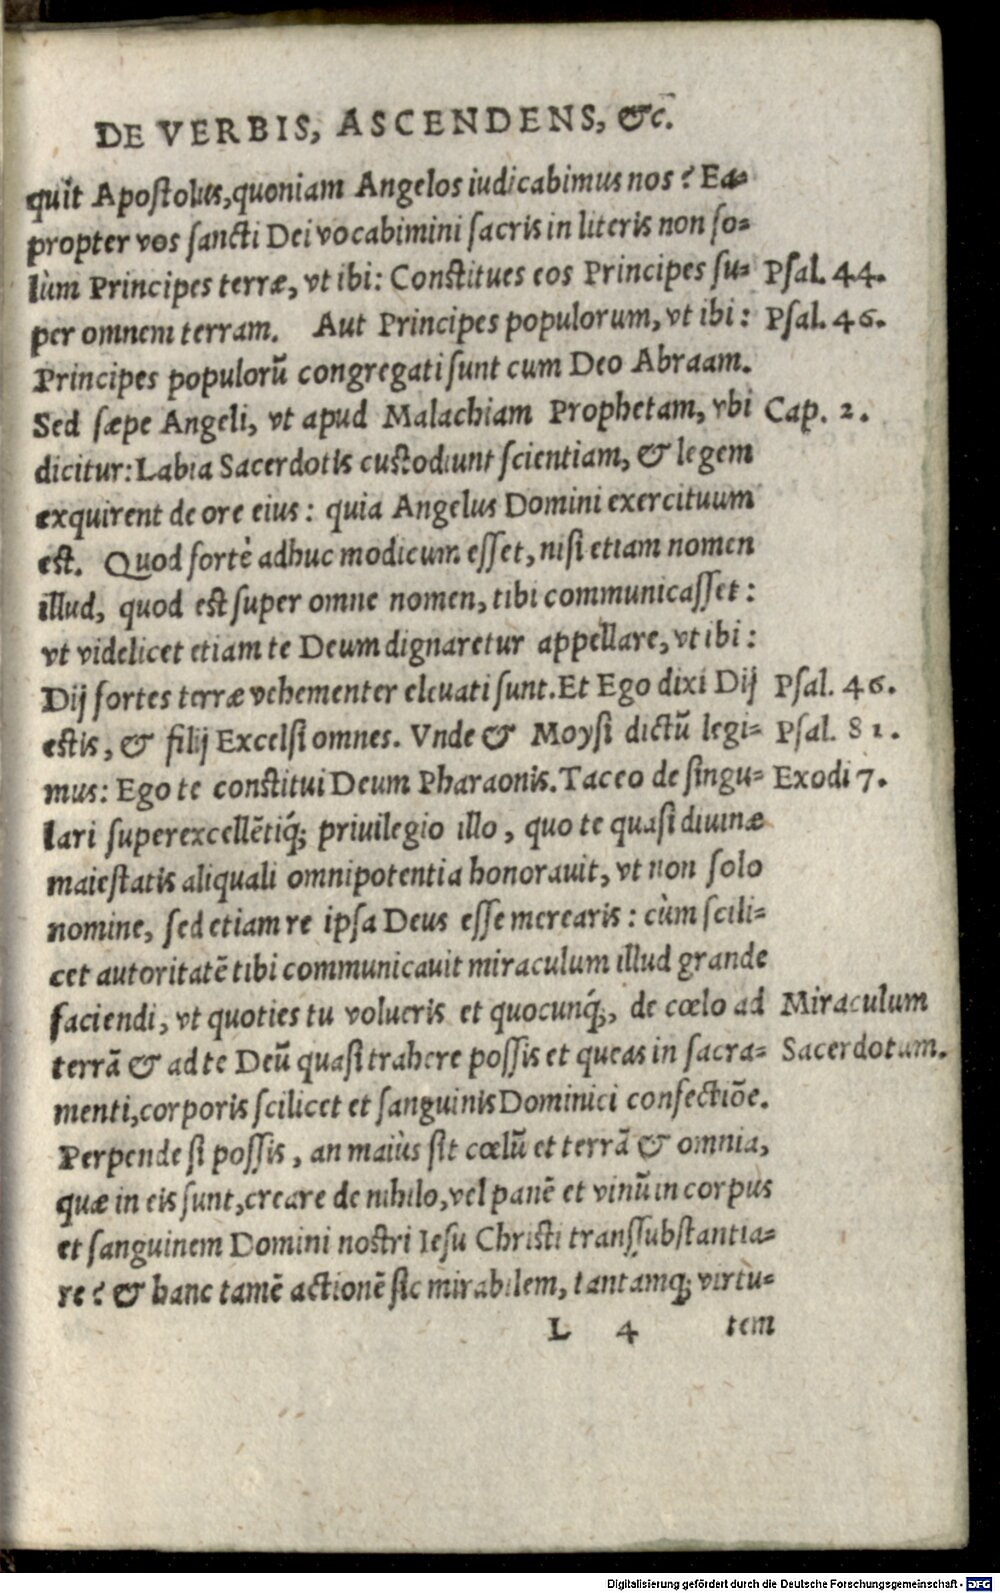 DE VERBIS, ASCENDENS, &c.
quit Apostolus, quoniam Angelos iudicabimus nos? Ea-
propter vos sancti Dei vocabimini sacris in literis non so-
lùm Principes terræ, vt ibi: Constitues eos Principes su- Psal. 44.
per omnem terram. Aut Principes populorum, vt ibi: Psal. 46.
Principes populorũ congregati sunt cum Deo Abraam.
Sed sæpe Angeli, vt apud Malachiam Prophetam, vbi Cap. 2.
dicitur: Labia Sacerdotis custodiunt scientiam, & legem
exquirent de ore eius: quia Angelus Domini exercituum
est. Quod fortè adhuc modicum esset, nisi etiam nomen
illud, quod est super omne nomen, tibi communicasset:
vt videlicet etiam te Deum dignaretur appellare, vt ibi:
Dij fortes terræ vehementer eleuati sunt. Et Ego dixi Dij Psal. 46.
estis, & filij Excelsi omnes. Vnde & Moysi dictũ legi- Psal. 81.
mus: Ego te constitui Deum Pharaonis. Taceo de singu- Exodi 7.
lari superexcellẽtiq́; priuilegio illo, quo te quasi diuinæ
maiestatis aliquali omnipotentia honorauit, vt non solo
nomine, sed etiam re ipsa Deus esse merearis: cùm scili-
cet autoritatẽ tibi communicauit miraculum illud grande
faciendi, vt quoties tu volueris et quocunq́;, de cœlo ad Miraculum
terrã & ad te Deũ quasi trahere possis et queas in sacra- Sacerdotum.
menti, corporis scilicet et sanguinis Dominici confectiõe.
Perpende si possis, an maiùs sit cœlũ et terrã & omnia,
quæ in eis sunt, creare de nihilo, vel panẽ et vinũ in corpus
et sanguinem Domini nostri Iesu Christi transsubstantia-
re? & hanc tamẽ actionẽ sic mirabilem, tantamq; virtu-
L 4 tem
Digitalisierung gefördert durch die Deutsche Forschungsgemeinschaft - DFG